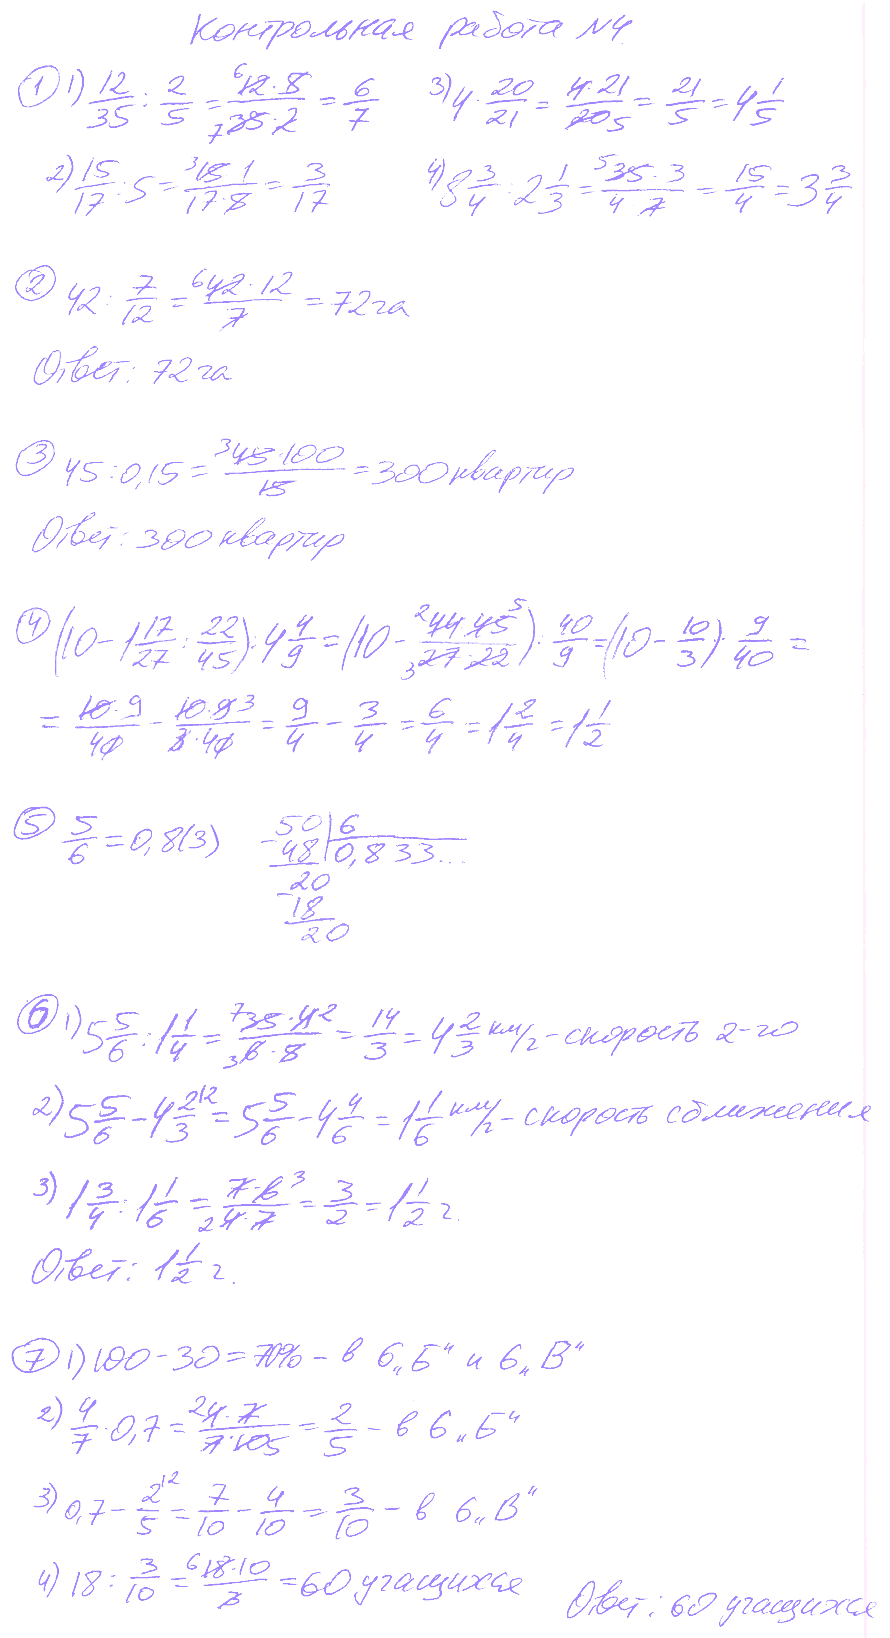 Контрольная работа №4.
① 1) 12/35 : 2/5 = 12·5/35·2 = 6/7   3) 4 · 20/21 = 4·21/20 5 = 21/5 = 4 1/5
2) 15/17 : 5 = 15·1/17·5 = 3/17   4) 8 3/4 : 2 1/3 = 35·3/4·7 = 15/4 = 3 3/4
② 42 : 7/12 = 42·12/7 = 72 га
Ответ: 72 га
③ 45 : 0,15 = 45·100/15 = 300 квартир
Ответ: 300 квартир
④ (10 - 1 17/27 : 22/45) : 4 4/9 = (10 - 44·45/27·22) : 40/9 = (10 - 10/3) · 9/40 =
= 10·9/40 - 10·9/3·40 = 9/4 - 3/4 = 6/4 = 1 2/4 = 1 1/2
⑤ 5/6 = 0,8(3)   50 | 6
- 48 | 0,833...
20
- 18
20
⑥ 1) 5 5/6 : 1 1/4 = 35·4/6·5 = 14/3 = 4 2/3 км/ч - скорость 2-го
2) 5 5/6 - 4 2/3 = 5 5/6 - 4 4/6 = 1 1/6 км/ч - скорость сближения
3) 1 3/4 : 1 1/6 = 7·6/4·7 = 3/2 = 1 1/2 ч.
Ответ: 1 1/2 ч.
⑦ 1) 100 - 30 = 70% - в 6 „Б“ и 6 „В“
2) 4/7 · 0,7 = 4·7/7·10 = 2/5 - в 6 „Б“
3) 0,7 - 2/5 = 7/10 - 4/10 = 3/10 - в 6 „В“
4) 18 : 3/10 = 18·10/3 = 60 учащихся   Ответ: 60 учащихся